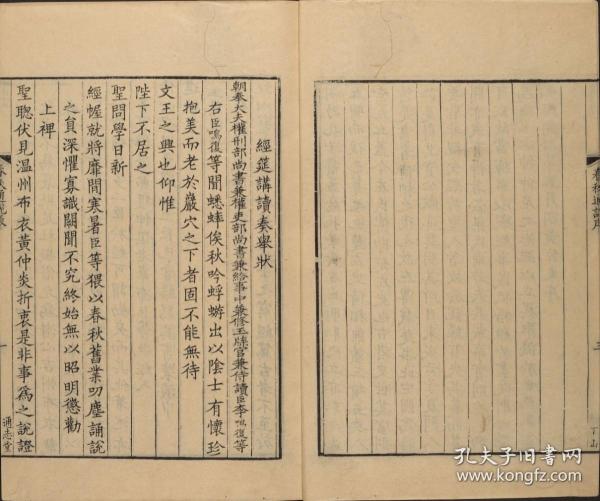 經筵講讀奏舉狀
朝奉大夫權刑部尚書兼權吏部尚書兼給事中兼修玉牒官兼侍讀臣李鳴復等
右臣鳴復等聞蟋蟀俟秋吟蜉蝣出以陰士有懷珍
抱美而老於巖穴之下者固不能無待
文王之興也仰惟
陛下不居之
聖問學日新
經幄就將靡間寒暑臣等猥以春秋舊業叨塵誦說
之員深懼寡識闕聞不究終始無以昭明懲勸
上裨
聖聰伏見溫州布衣黃仲炎折衷是非事爲之說證
春秋通說表
一
通志堂
春秋通說序
三
丁山
孔夫子旧书网
www.kongfz.com